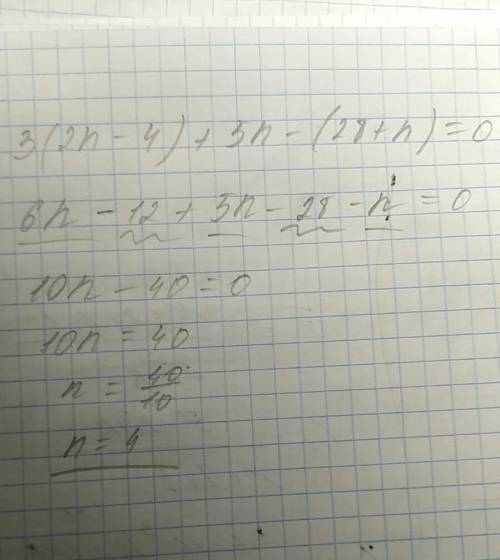 3(2n - 4) + 5n - (28 + n) = 0
6n - 12 + 5n - 28 - n = 0
10n - 40 = 0
10n = 40
n = 40/10
n = 4